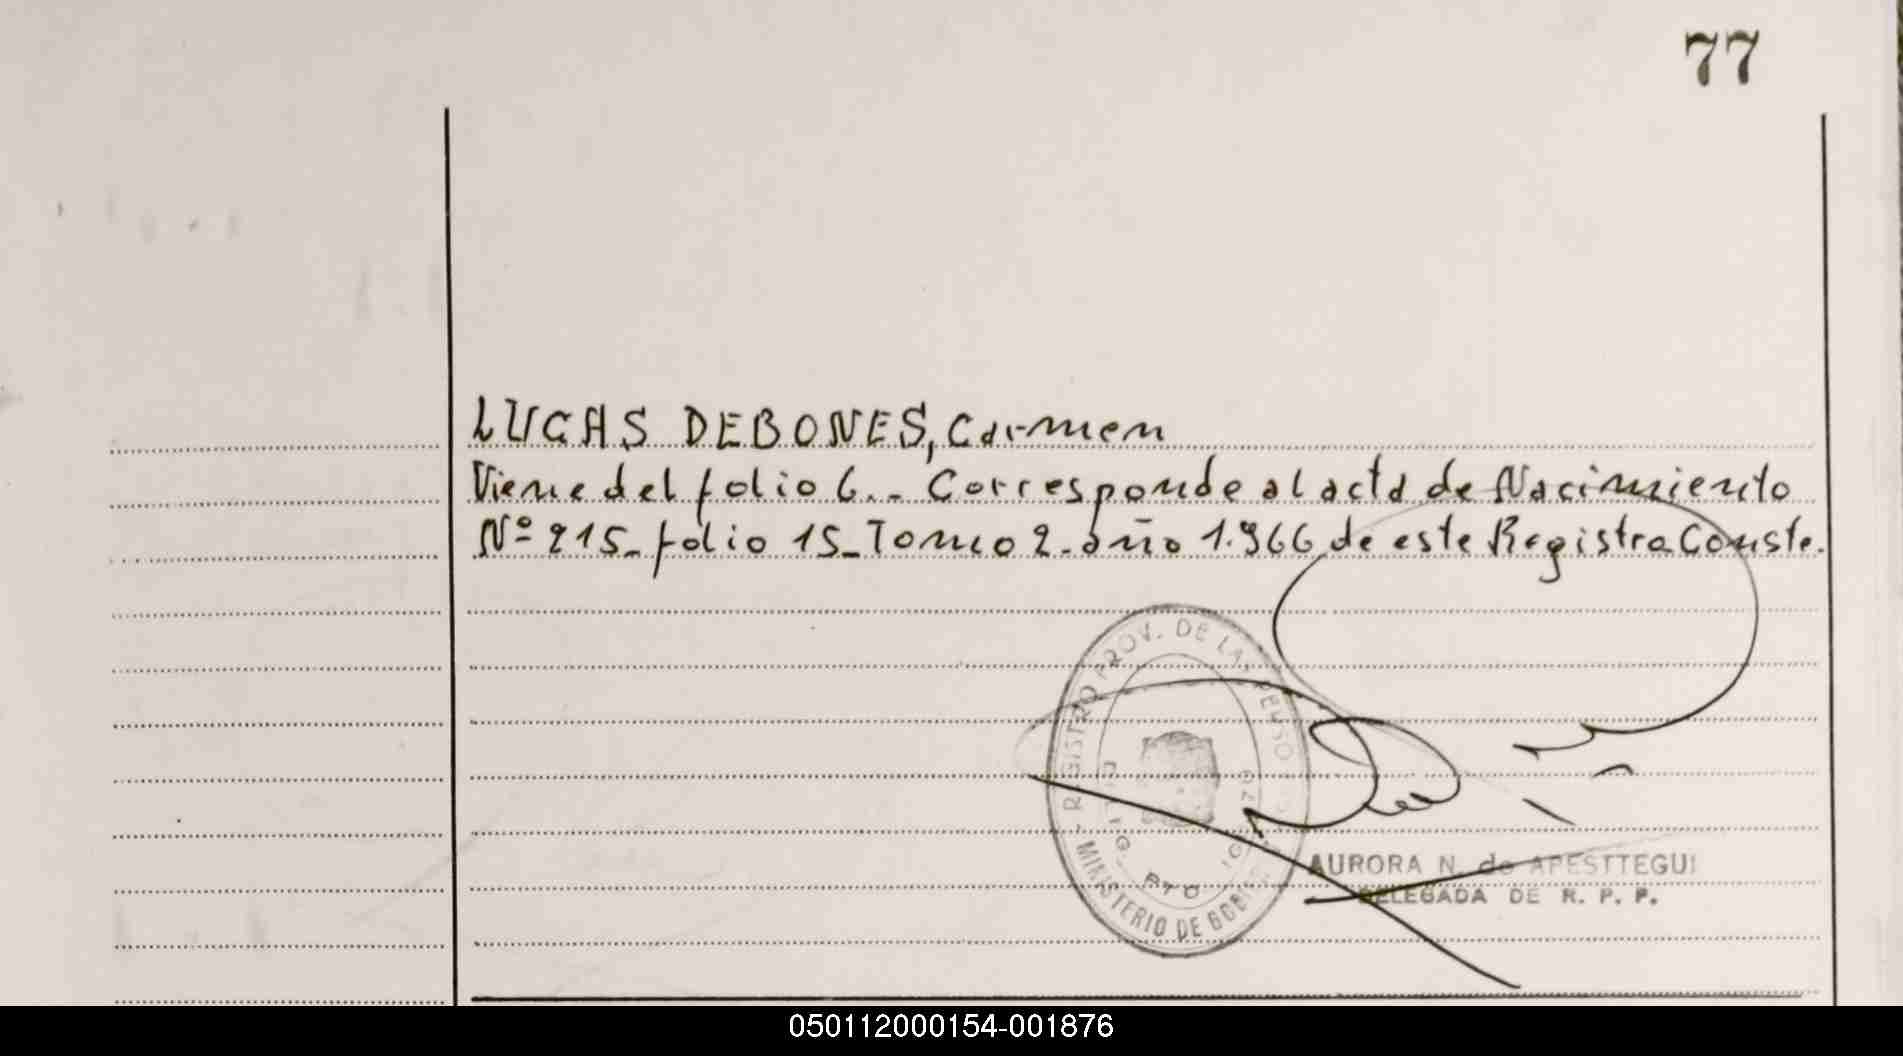 77
LUCAS DEBONES, Carmen
Viene del folio 6.- Corresponde al acta de Nacimiento
Nº 215- folio 15- Tomo 2- año 1.966, de este Registro Conste.
REGISTRO PROV. DE LAS PERSO
MINISTERIO DE GOB
AURORA N. de APESTTEGUI
DELEGADA DE R. P. P.
050112000154-001876